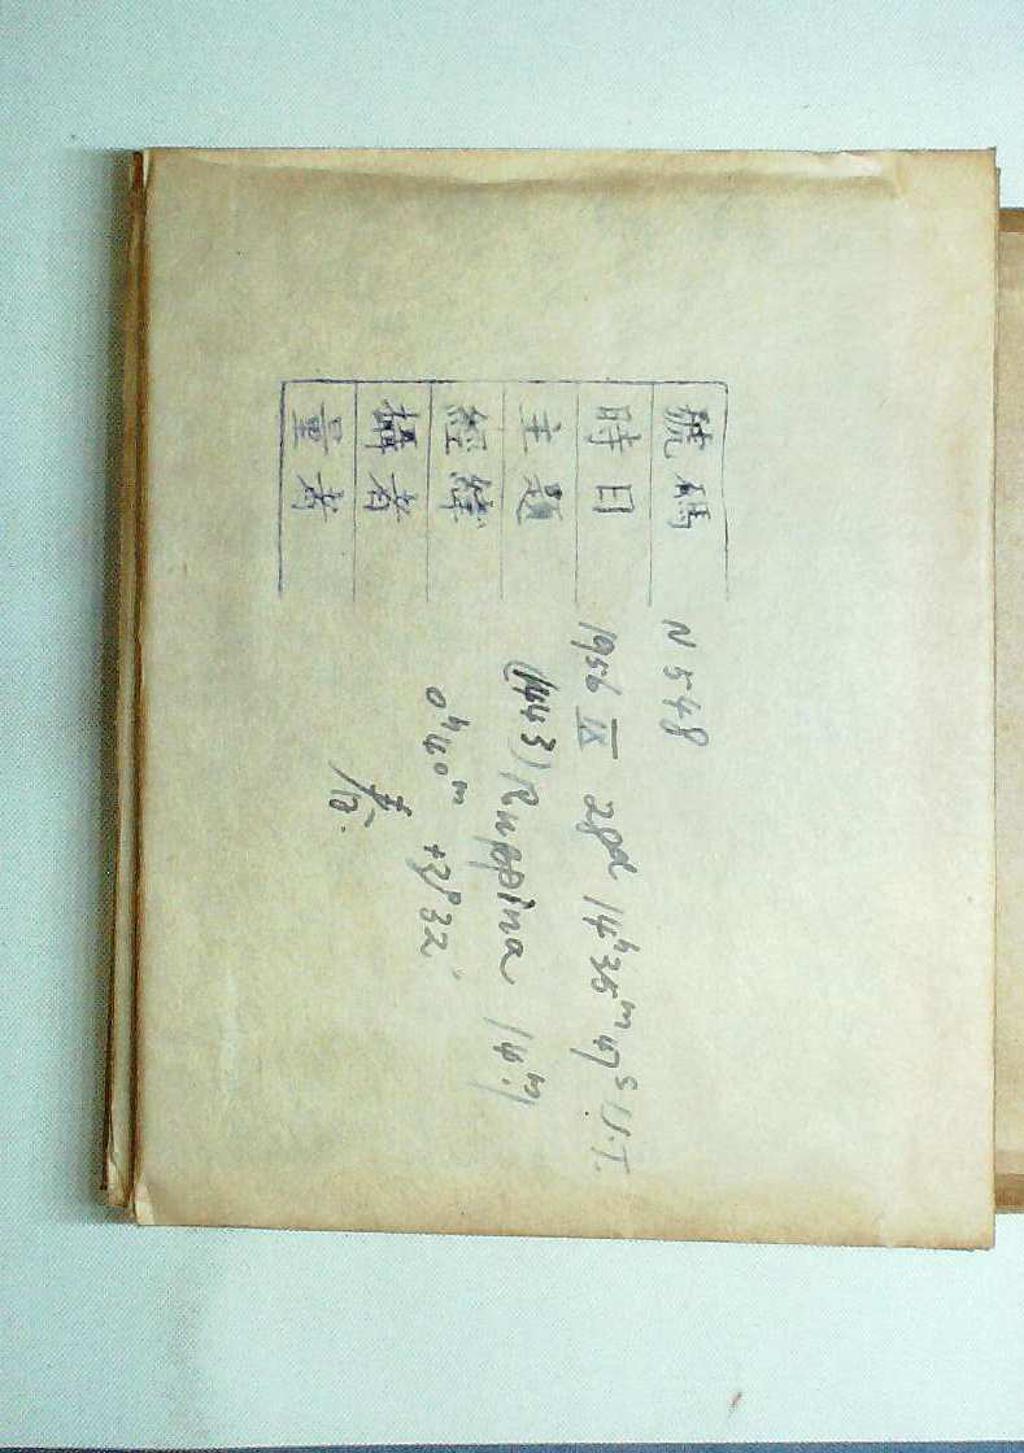 號碼 N 548
時日 1956 IX 28d 14h 35m 47s U.T.
主題 (1443) Ruppina 14m.)
經緯 0h 40m +3° 32'
攝者
量者